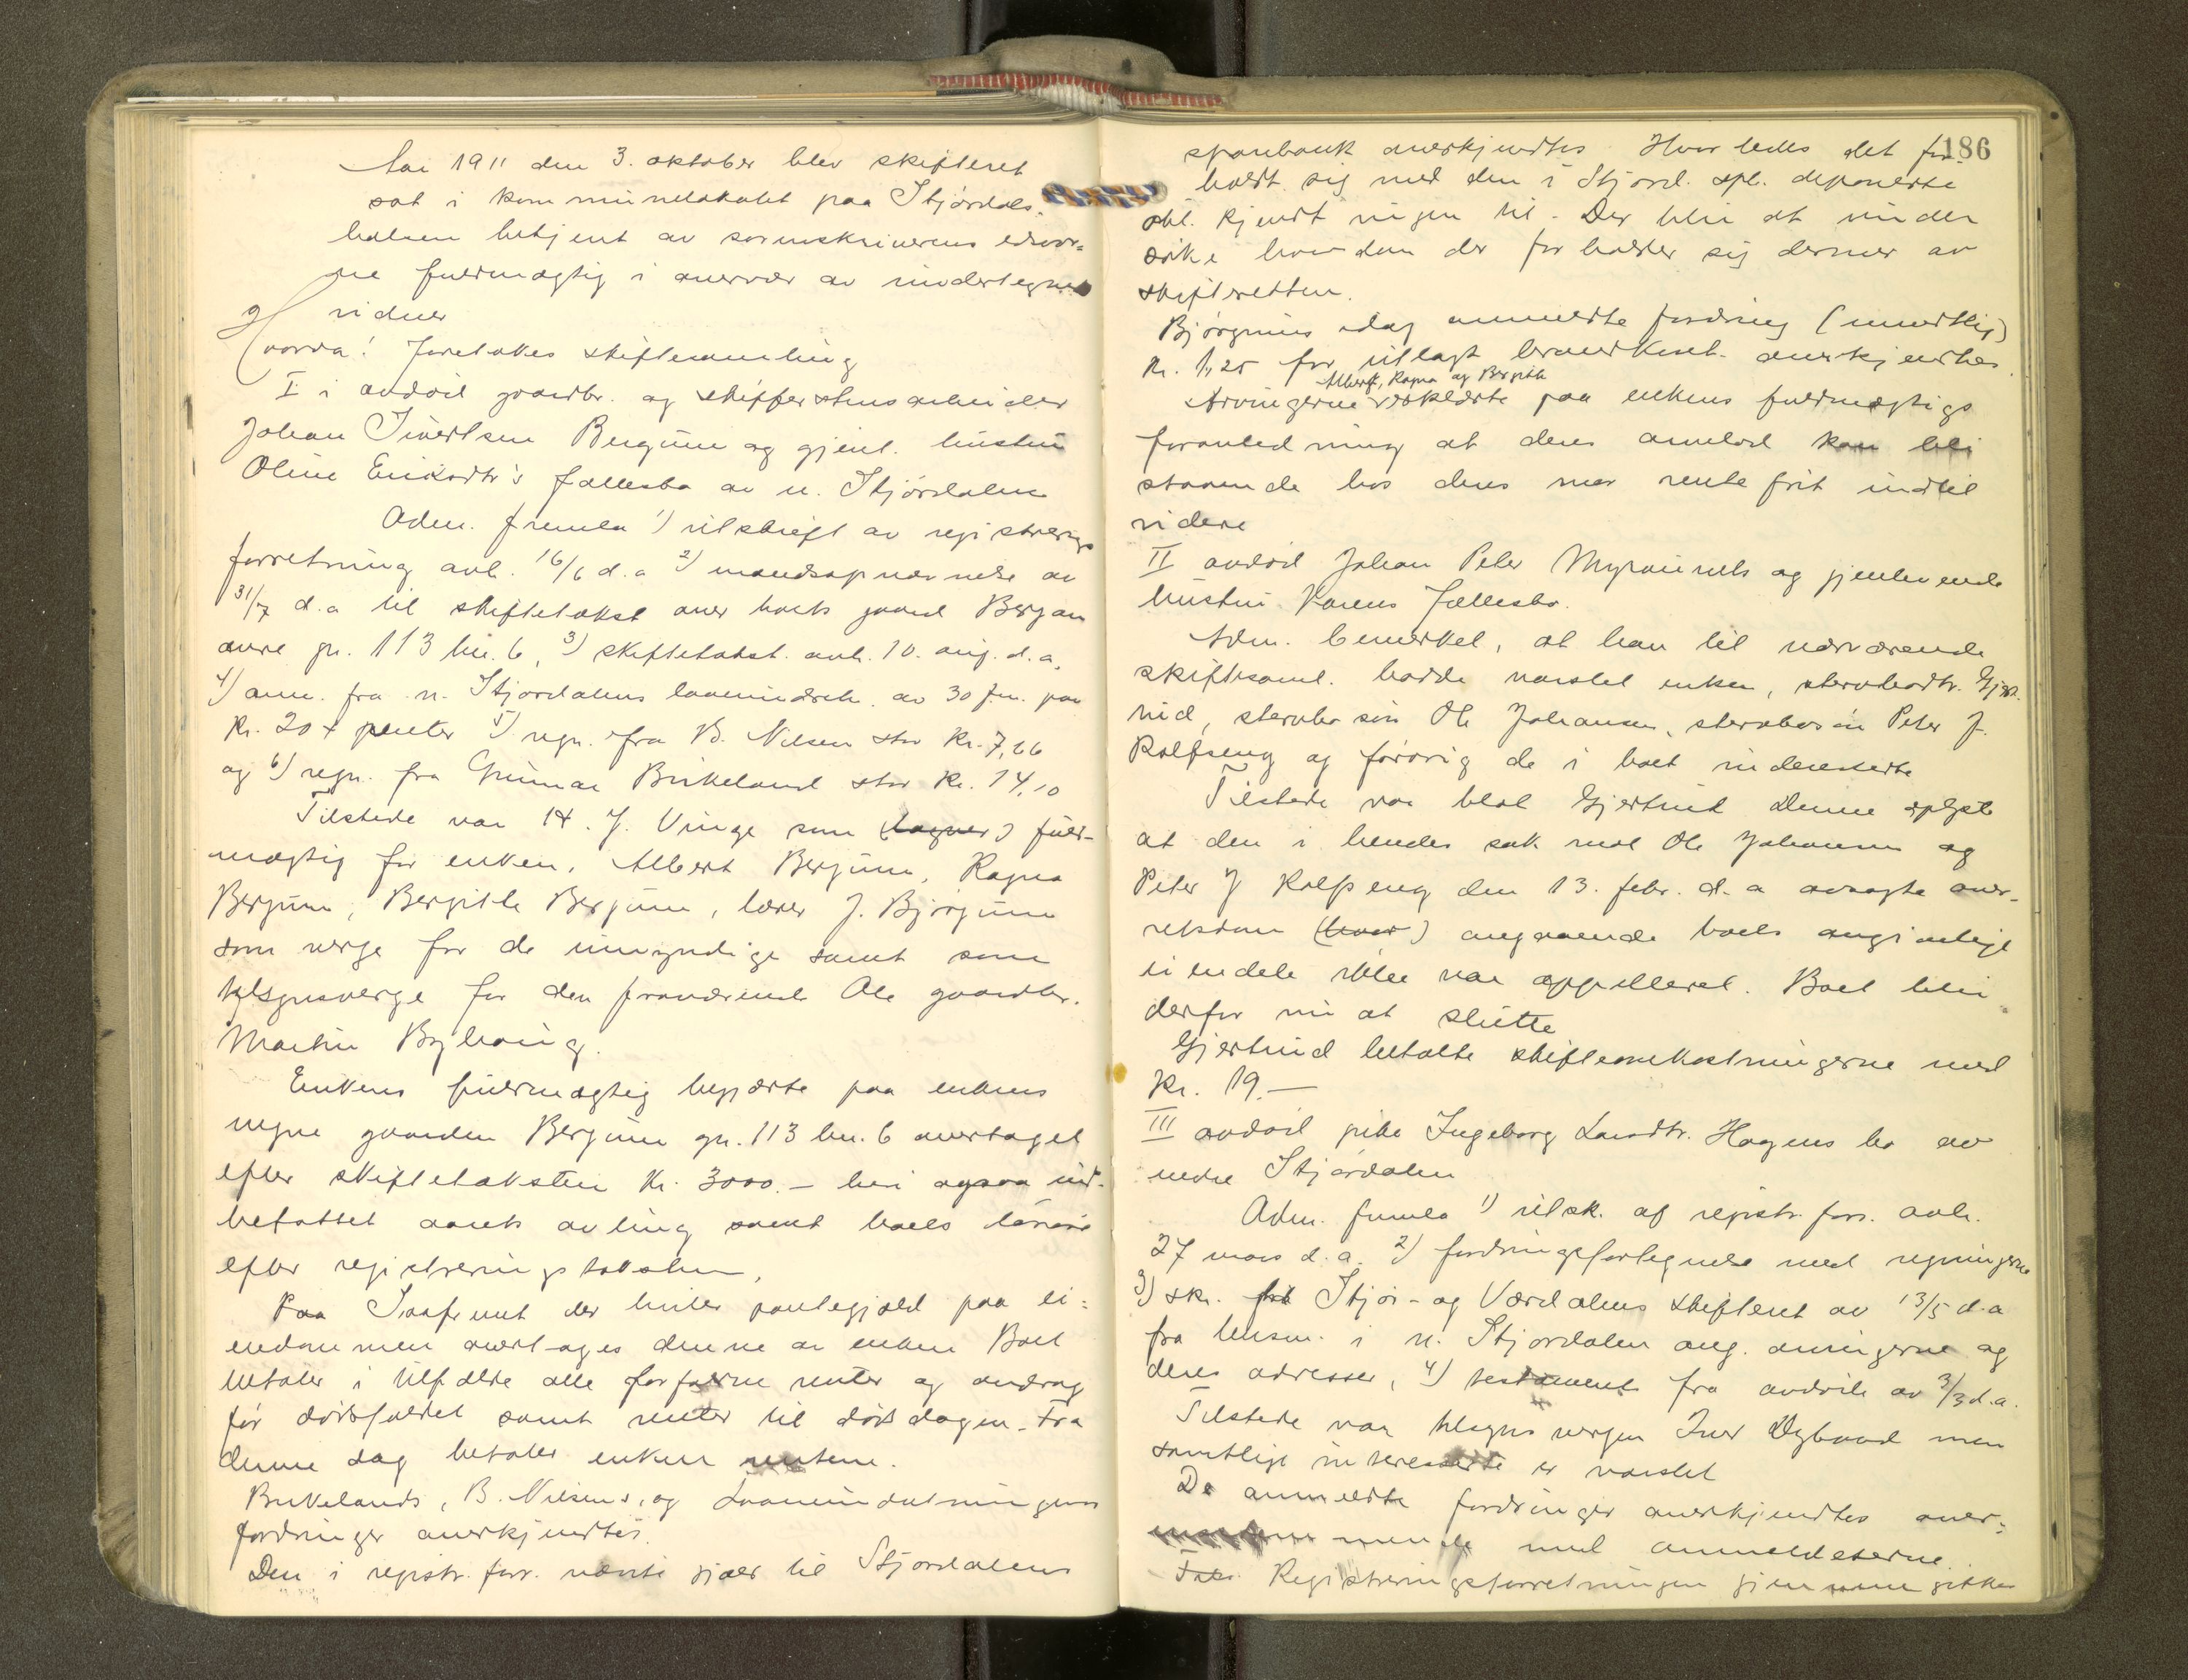 Aar 1911 den 3. oktober blev skifteret
sat i kommunelokalet paa Stjørdals-
halsen betjent av sorenskriverens edsvor-
ne fuldmægtig i overvær av undertegnede
vidner
Hvorda! Foretokes skiftesamling
I i avdød gaardbr. og skifferstensarbeider
Johan Sivertsen Bergum og gjenl. hustru
Oline Eriksdtr's fællesbo av n. Stjørdalen
Adm. fremla 1) utskrift av registrerings
forretning avh. 16/6 d.a 2) mandsopnævnelse av
31/7 d.a til skiftetakst over boets gaard Bergum
øvre gn. 113 bn. 6, 3) skiftetakst avh. 10. aug. d.a.
4) anm. fra n. Stjørdalens laaneindretn. av 30 jun. paa
Kr. 20 + renter 5) regn. fra B. Nilsen stor Kr. 7,66
og 6) regn. fra Gunnar Birkeland stor Kr. 14,10
Tilstede var H. J. Vinge som (lagver) fuld-
mægtig for enken, Albert Bergum, Ragna
Bergum, Bergitte Bergum, lærer J. Bjørgum
som verge for de umyndige samt som
tilsynsverge for den fraværende Ole gaardbr.
Martin Byhaug.
Enkens fuldmægtig begjærte paa enkens
vegne gaarden Bergum gn. 113 bn. 6 overtaget
efter skiftetaksten Kr. 3000.- heri ogsaa ind-
befattet aarets avling samt boets løsøre
efter registreringstaksten.
Paa Saafremt der hviler pantegjæld paa ei-
endommen overtages denne av enken Boet
betaler i tilfælde alle forfaldne renter og avdrag
før dødsfaldet samt renter til dødsdagen. Fra
denne dag betaler enken renterne.
Birkelands, B. Nilsens, og Laaneindretningens
fordringer anerkjendtes.
Den i registr. forr. nævnte gjæld til Stjørdalens
186
sparebank anerkjendtes. Hvorledes det for-
holdt sig med den i Stjørd. spb. deponerte
obl. kjendt ingen til. Der blir at under
søke hvordan der forholder sig dermed av
skifteretten.
Bjørgums idag anmeldte fordring (mundtlig)
Kr. 1,25 for utlagt brandkont. anerkjendtes.
Albert, Ragna og Bergitte
Arvingerne erklærte paa enkens fuldmægtigs
foranledning at deres arvelod kan bli
staaende hos deres mor rentefrit indtil
videre
II avdød Johan Peter Myraunets og gjenlevende
hustru Karens Fællesbo.
Adm. bemerket, at han til nærværende
skiftesaml. hadde varslet enken, stervbodtr. Gjert-
rud, stervbosøn Ole Johansen, stervbosøn Peter J.
Rolfseng og forøvrig de i boet interesserte
Tilstede var blot Gjertrud Denne oplyste
at den i hendes sak mot Ole Johansen og
Peter J Rolfseng den 13. febr. d.a avsagte over-
retsdom (hvor) angaaende boets angivelige
eiendele ikke var appelleret. Boet blir
derfor nu at slutte
Gjertrud betalte skifteomkostningerne med
Kr. 19.-
III avdød pike Ingeborg Larsdtr. Hagens bo av
nedre Stjørdalen
Adm. fremla 1) utsk. af registr. forr. avh.
27 mars d.a. 2) fordringsfortegnelse med regningerne
3) skr. fra Stjør- og Værdalens skifteret av 13/5 d.a
fra lensm. i n. Stjørdalen ang. arvingerne og
deres adresser, 4) testament fra avdøde av 3/3 d.a.
Tilstede var tilsynsvergen Iver Dybvad men
samtlige interesserte er varslet
De anmeldte fordringer anerkjendtes over-
mende med anmeldelserne.
Registreringsforretningen gjennemgikkes